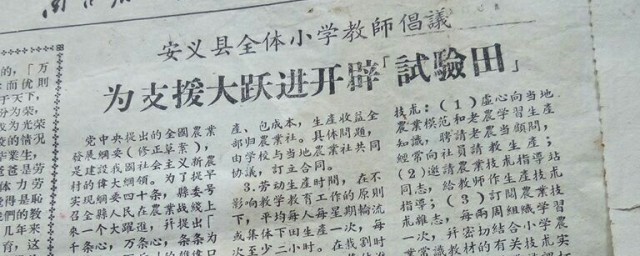 安义县全体小学教師倡議
为支援大跃进开辟「試驗田」
党中央提出的全國農業
發展綱要(修正草案),
是建設我國社会主义新農
村的偉大綱領。为了提早
实現綱要四十条,縣委号
召全縣人民在農業战綫上
來一个大躍進,幷提出「
千条心,万条心,条条为
產、包成本,生產收益全
部归農業社。具体問題,
由学校与当地農業社共同
协議,訂立合同。
3.劳动生產时間,在不
影响教学教育工作的原則
下,平均每人每星期輪流
或集体下田生產一次,每
次至少二小时。在找割时
技朮:(1)虛心向当地
農業模范和老農学習生產
知識,聘請老農当顧問,
經常向社員請教生產;
(2)邀請農業技朮指導站
同志,給教师作生產技朮
指導;(3)訂閱農業技
朮雜志,每兩周組織学習
一次,幷密切結合小学農
業常識教材的有关技朮实
的,「万
:而优則
于天下,
分为荣,
攺为光荣
校的情况
毕業生,
爸爸是劳
体力劳
覚得是恥
門的教
几年來
育,这